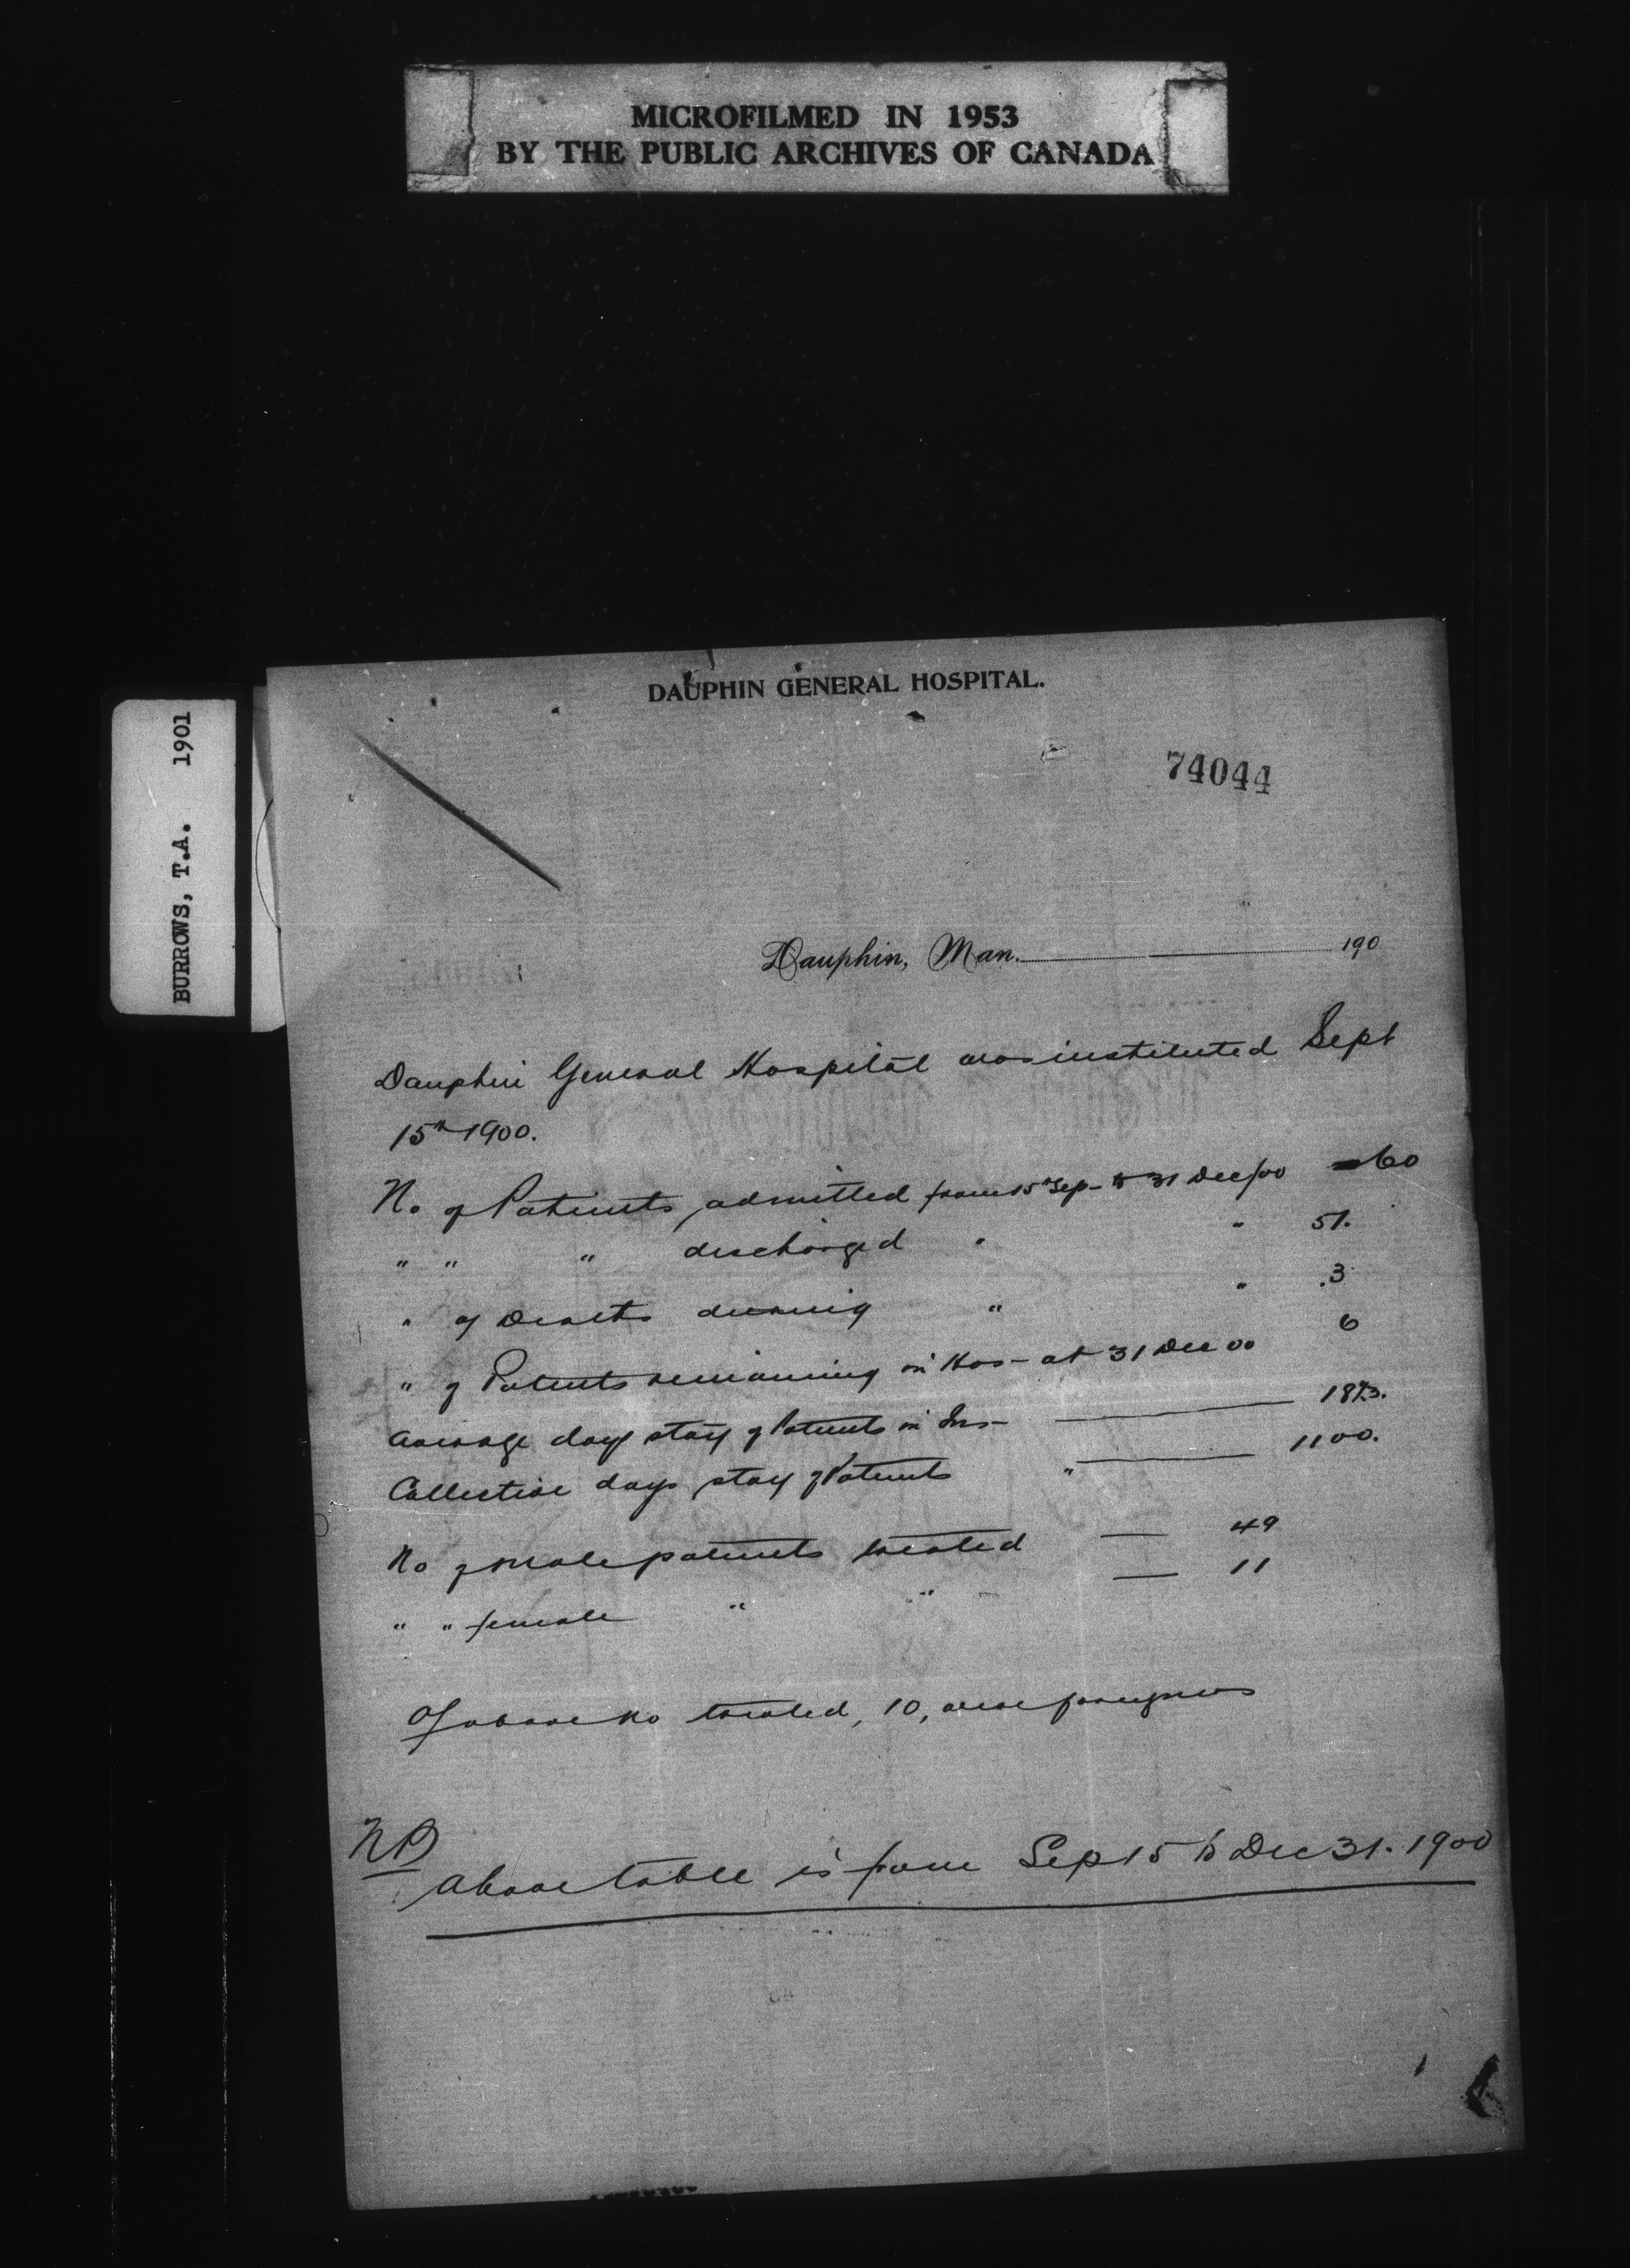 MICROFILMED IN 1953
BY THE PUBLIC ARCHIVES OF CANADA
BURROWS, T.A. 1901
DAUPHIN GENERAL HOSPITAL.
74044
Dauphin, Man. 190
Dauphin General Hospital was instituted Sept
15th 1900.
No of Patients admitted from 15th Sep - to 31 Dec/00 60
" " " discharged " " 51.
" of Deaths during " " 3
" of Patients remaining in Hos - at 31 Dec 00 6
Average days stay of Patients in Ins - 18⅓.
Collective days stay of Patients " 1100.
No of male patients treated — 49
" " female " " — 11
Of above no treated, 10, were foreigners
NB
Above table is from Sep 15 to Dec 31. 1900